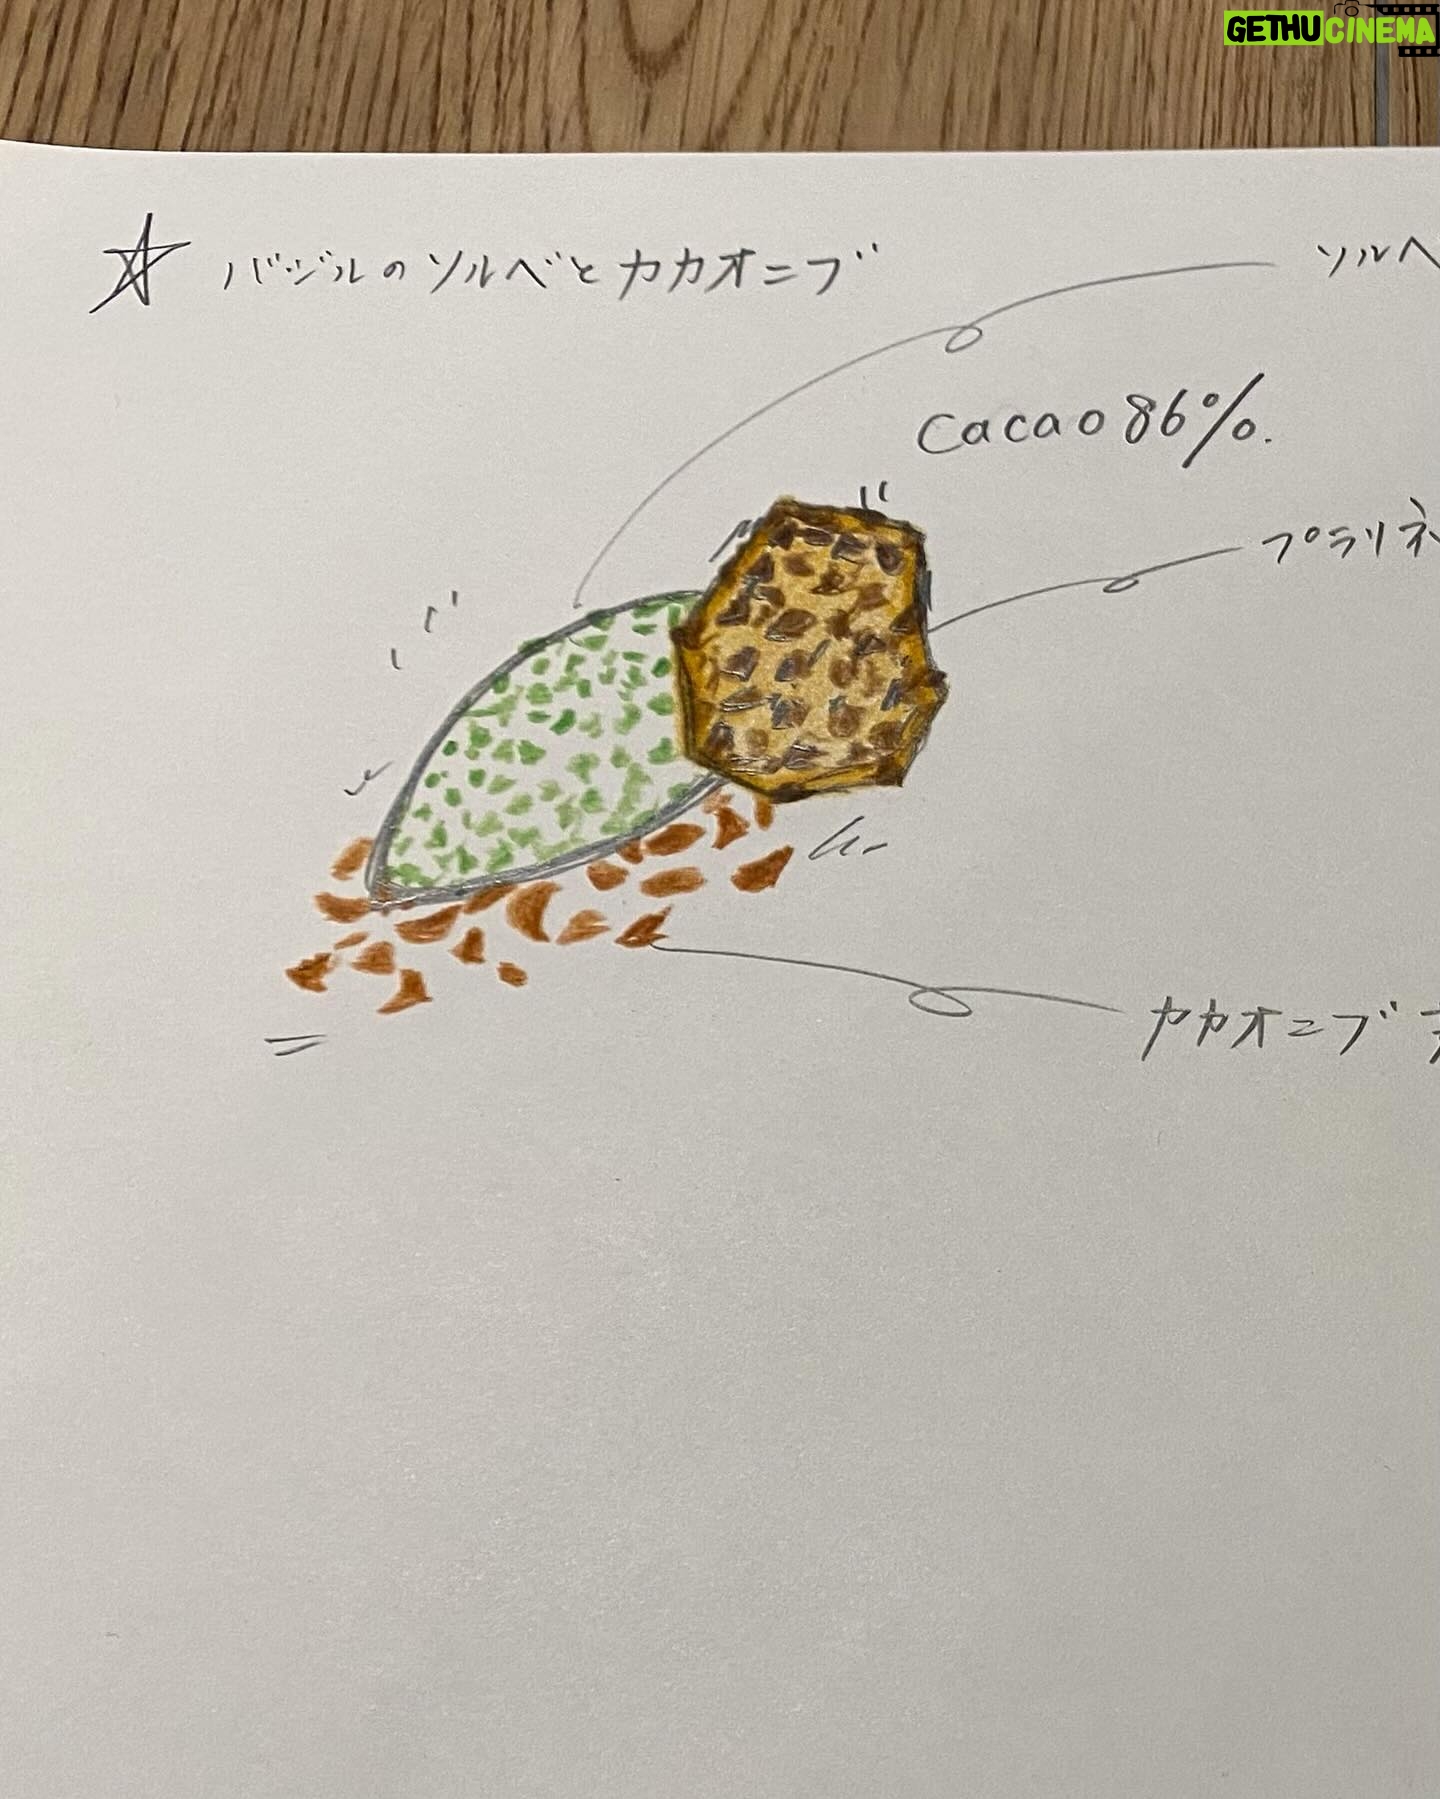 GETHUCINEMA
☆ バジルのソルベとカカオニブ
ソルベ
Cacao 86%.
プラリネ
カカオニブ